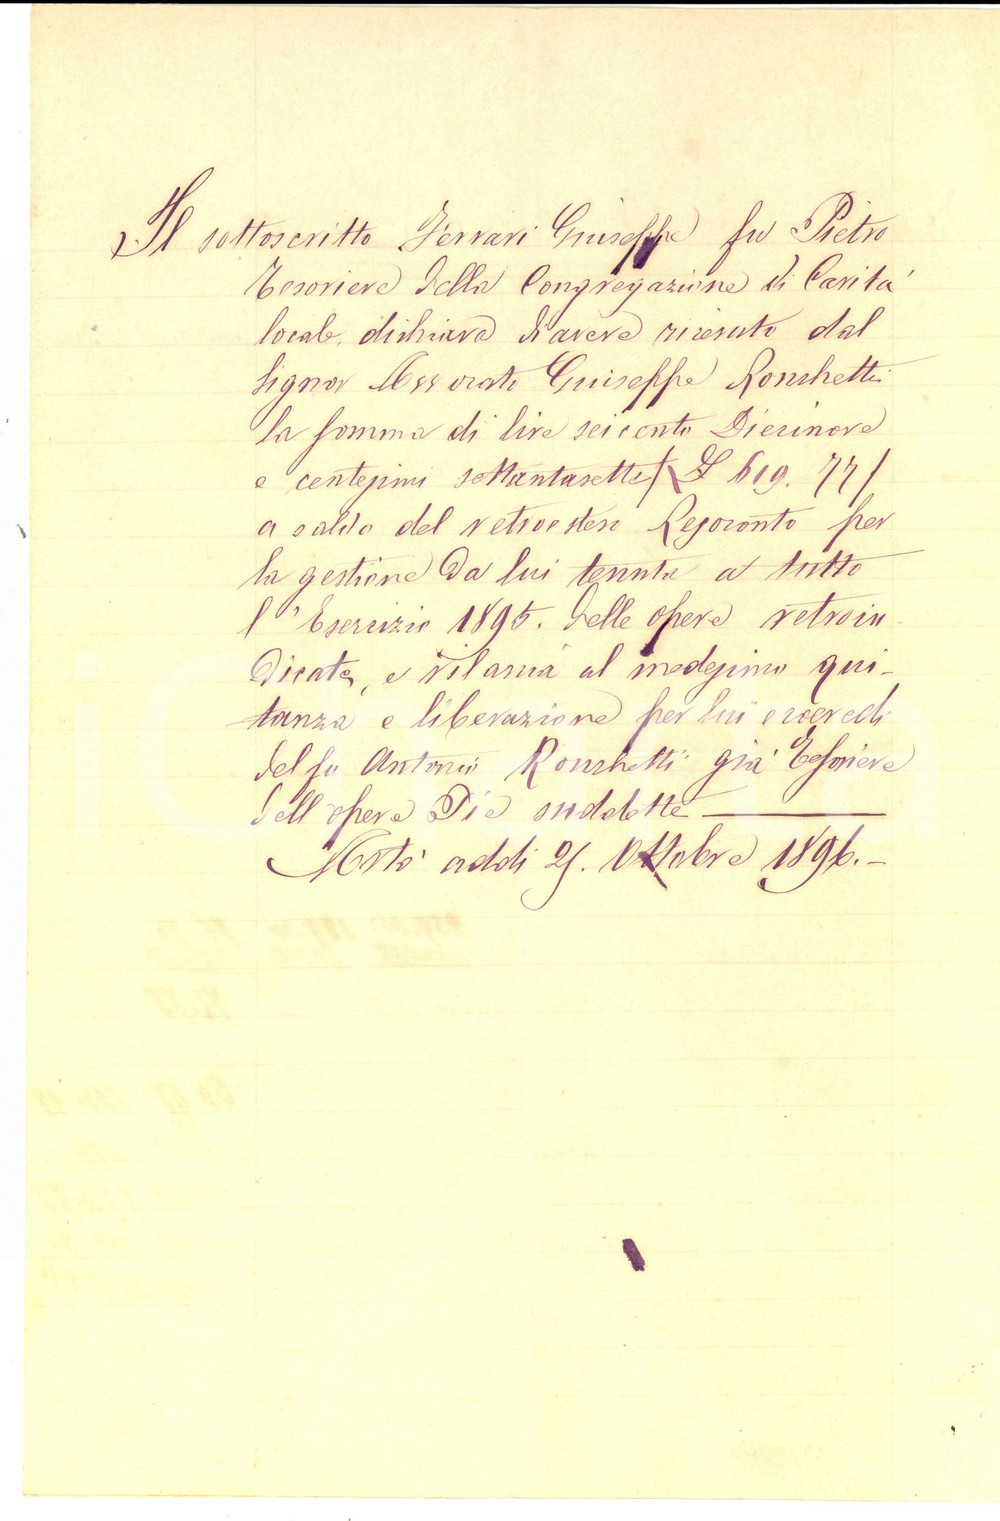 Il sottoscritto Ferrari Giuseppe fu Pietro
Tesoriere della Congregazione di Carità
locale, dichiara di avere ricevuto dal
Signor Avvocato Giuseppe Ronchetti
la somma di lire seicento Diecinove
e centesimi settantasette (L 619. 77)
a saldo del retroesteso Resoconto per
la gestione Da lui tenuta a tutto
l'Esercizio 1895. delle opere retroin-
dicate, e rilascia al medesimo qui-
tanza e liberazione per lui e coeredi
del fu Antonio Ronchetti già Tesoriere
dell opere Pie suddette
addi 21. Ottobre 1896.-